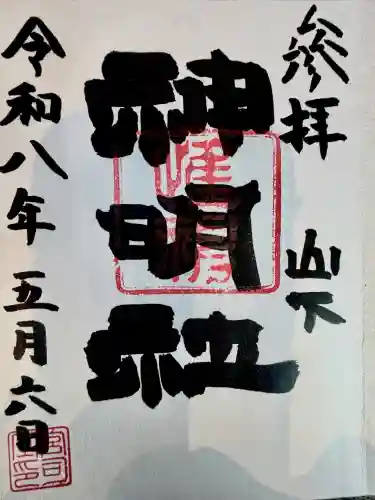 參拝
神明社
令和八年五月六日